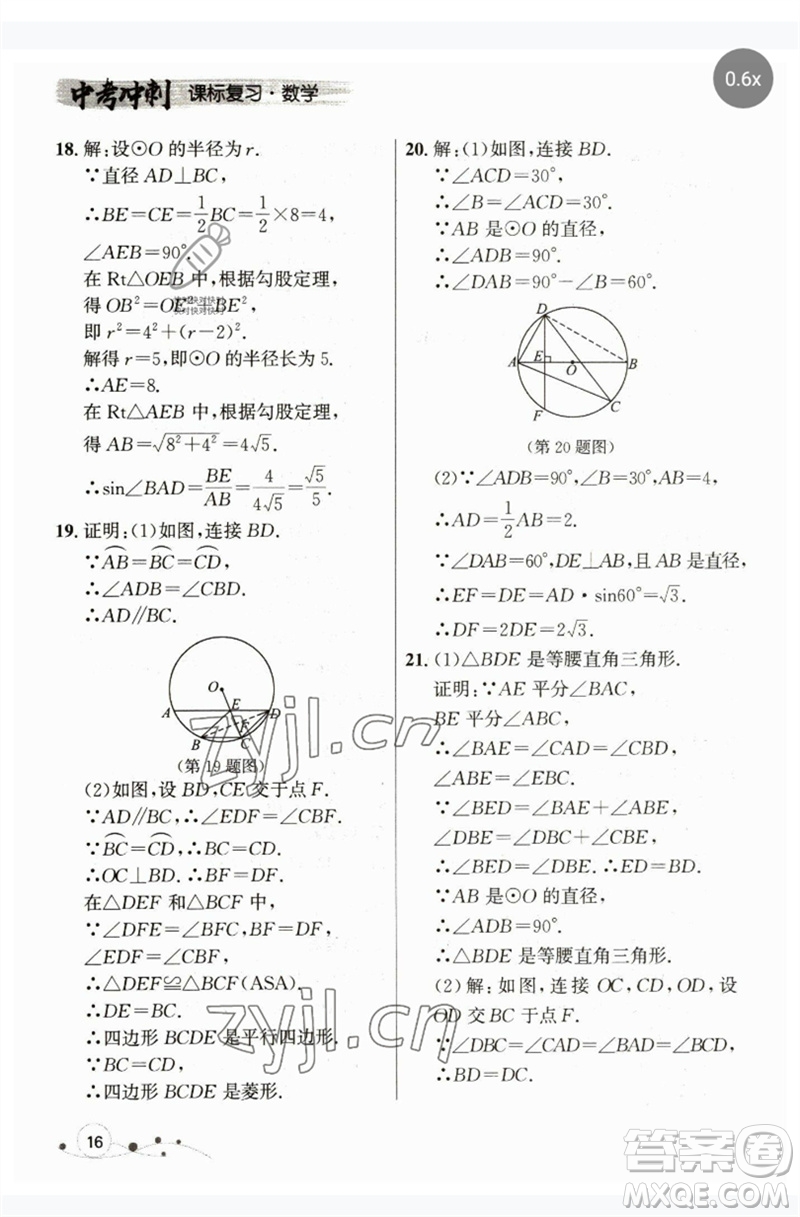 0.6x
中考冲刺 课标复习·数学
18. 解:设⊙O 的半径为 r.
∵直径 AD⊥BC,
∴BE=CE=1/2BC=1/2×8=4,
∠AEB=90°.
在 Rt△OEB 中,根据勾股定理,
得 OB²=OE²+BE²,
即 r²=4²+(r-2)².
解得 r=5,即⊙O 的半径长为 5.
∴AE=8.
在 Rt△AEB 中,根据勾股定理,
得 AB=√(8²+4²)=4√5.
∴sin∠BAD=BE/AB=4/(4√5)=√5/5.
19. 证明:(1)如图,连接 BD.
∵⌒AB=⌒BC=⌒CD,
∴∠ADB=∠CBD.
∴AD∥BC.
O
A E D
F
B C
(第 19 题图)
(2)如图,设 BD,CE 交于点 F.
∵AD∥BC,∴∠EDF=∠CBF.
∵⌒BC=⌒CD,∴BC=CD.
∴OC⊥BD.∴BF=DF.
在△DEF 和△BCF 中,
∵∠DFE=∠BFC,BF=DF,
∠EDF=∠CBF,
∴△DEF≌△BCF(ASA).
∴DE=BC.
∴四边形 BCDE 是平行四边形.
∵BC=CD,
∴四边形 BCDE 是菱形.
20. 解:(1)如图,连接 BD.
∵∠ACD=30°,
∴∠B=∠ACD=30°.
∵AB 是⊙O 的直径,
∴∠ADB=90°.
∴∠DAB=90°-∠B=60°.
D
A E O B
F C
(第 20 题图)
(2)∵∠ADB=90°,∠B=30°,AB=4,
∴AD=1/2AB=2.
∵∠DAB=60°,DE⊥AB,且 AB 是直径,
∴EF=DE=AD·sin60°=√3.
∴DF=2DE=2√3.
21. (1)△BDE 是等腰直角三角形.
证明:∵AE 平分∠BAC,
BE 平分∠ABC,
∴∠BAE=∠CAD=∠CBD,
∠ABE=∠EBC.
∵∠BED=∠BAE+∠ABE,
∠DBE=∠DBC+∠EBC,
∴∠BED=∠DBE.∴BD=ED.
∵AB 是⊙O 的直径,
∴∠ADB=90°.
∴△BDE 是等腰直角三角形.
(2)解:如图,连接 OC,CD,OD,设
OD 交 BC 于点 F.
∵∠DBC=∠CAD=∠BAD=∠BCD,
∴BD=DC.
16
zyjl.cn
zyjl.cn
答案圈
MXQE.COM